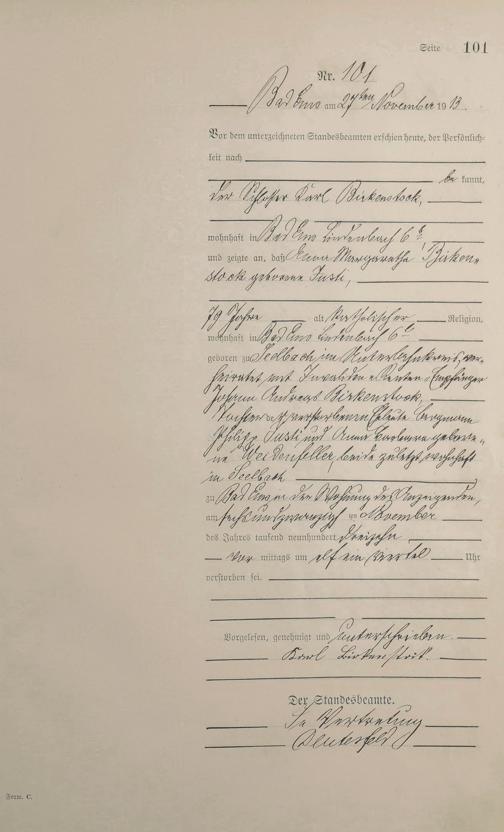 Seite 101
Nr. 101
Bad Ems am 27ten November 1913.
Vor dem unterzeichneten Standesbeamten erschien heute, der Persönlich-
keit nach
be kannt,
der Schlosser Karl Birkenstock,
wohnhaft in Bad Ems Lindenbach 6b
und zeigte an, daß Anna Margaretha Birken-
stock geborene Justi,
79 Jahre alt, katholischer Religion,
wohnhaft in Bad Ems Lindenbach 6b
geboren zu Seelbach im Unterlahnkreis, ver-
heiratet mit Invaliden-Renten-Empfänger
Johann Andreas Birkenstock,
Tochter der verstorbenen Eheleute Bergmann
Philipp Justi und Anna Barbara gebore-
ne Weidenfeller, beide zuletzt wohnhaft
in Seelbach
zu Bad Ems in der Wohnung des Anzeigenden,
am sechsundzwanzigsten November
des Jahres tausend neunhundert dreizehn
Vor mittags um elf ein viertel Uhr
verstorben sei.
Vorgelesen, genehmigt und unterschrieben.
Karl Birkenstock.
Der Standesbeamte.
In Vertretung
Form. C.